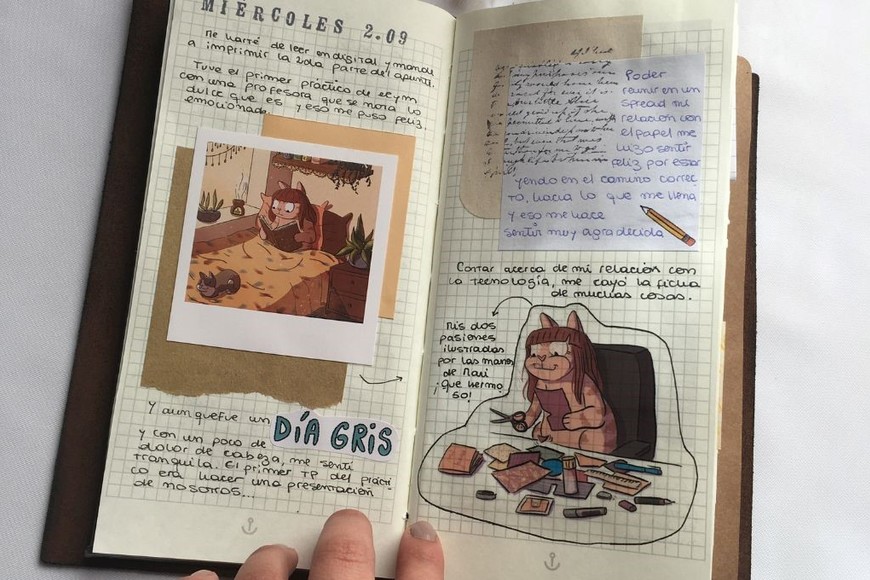 MIÉRCOLES 2.09
Me harté de leer en digital y mandé
a imprimir la 2da parte del apunte.
Tuve el primer práctico de
con una profesora que se moría lo
dulce que es y eso me puso feliz,
emocionada.
Y aunque fue un
DÍA GRIS
y con un poco de
dolor de cabeza, me sentí
tranquila. El primer TP del prácti-
co era hacer una presentación
de nosotros...
Poder
reunir en un
spread mi
relación con
el papel me
hizo sentir
feliz por estar
yendo en el camino correc
to, hacia lo que me llena
y eso me hace
sentir muy agradecida
Contar acerca de mi relación con
la tecnología, me cayó la ficha
de muchas cosas.
Mis dos
pasiones
ilustradas
por las manos
de
¡Que hermo
so!